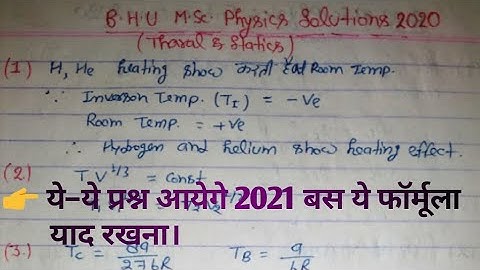 B.H.U M.Sc. Physics Solutions 2020
(1) H, He heating show करती हैं at Room Temp.
∵ Inversion Temp. (T_I) = -Ve
Room Temp. = +Ve
∴ Hydrogen and helium show heating effect.
(2) T V^1/3 = Const
👉 ये-ये प्रश्न आयेगे 2021 बस ये फॉर्मूला
याद रखना।
(3.) T_C = 8a/27bR T_B = a/bR